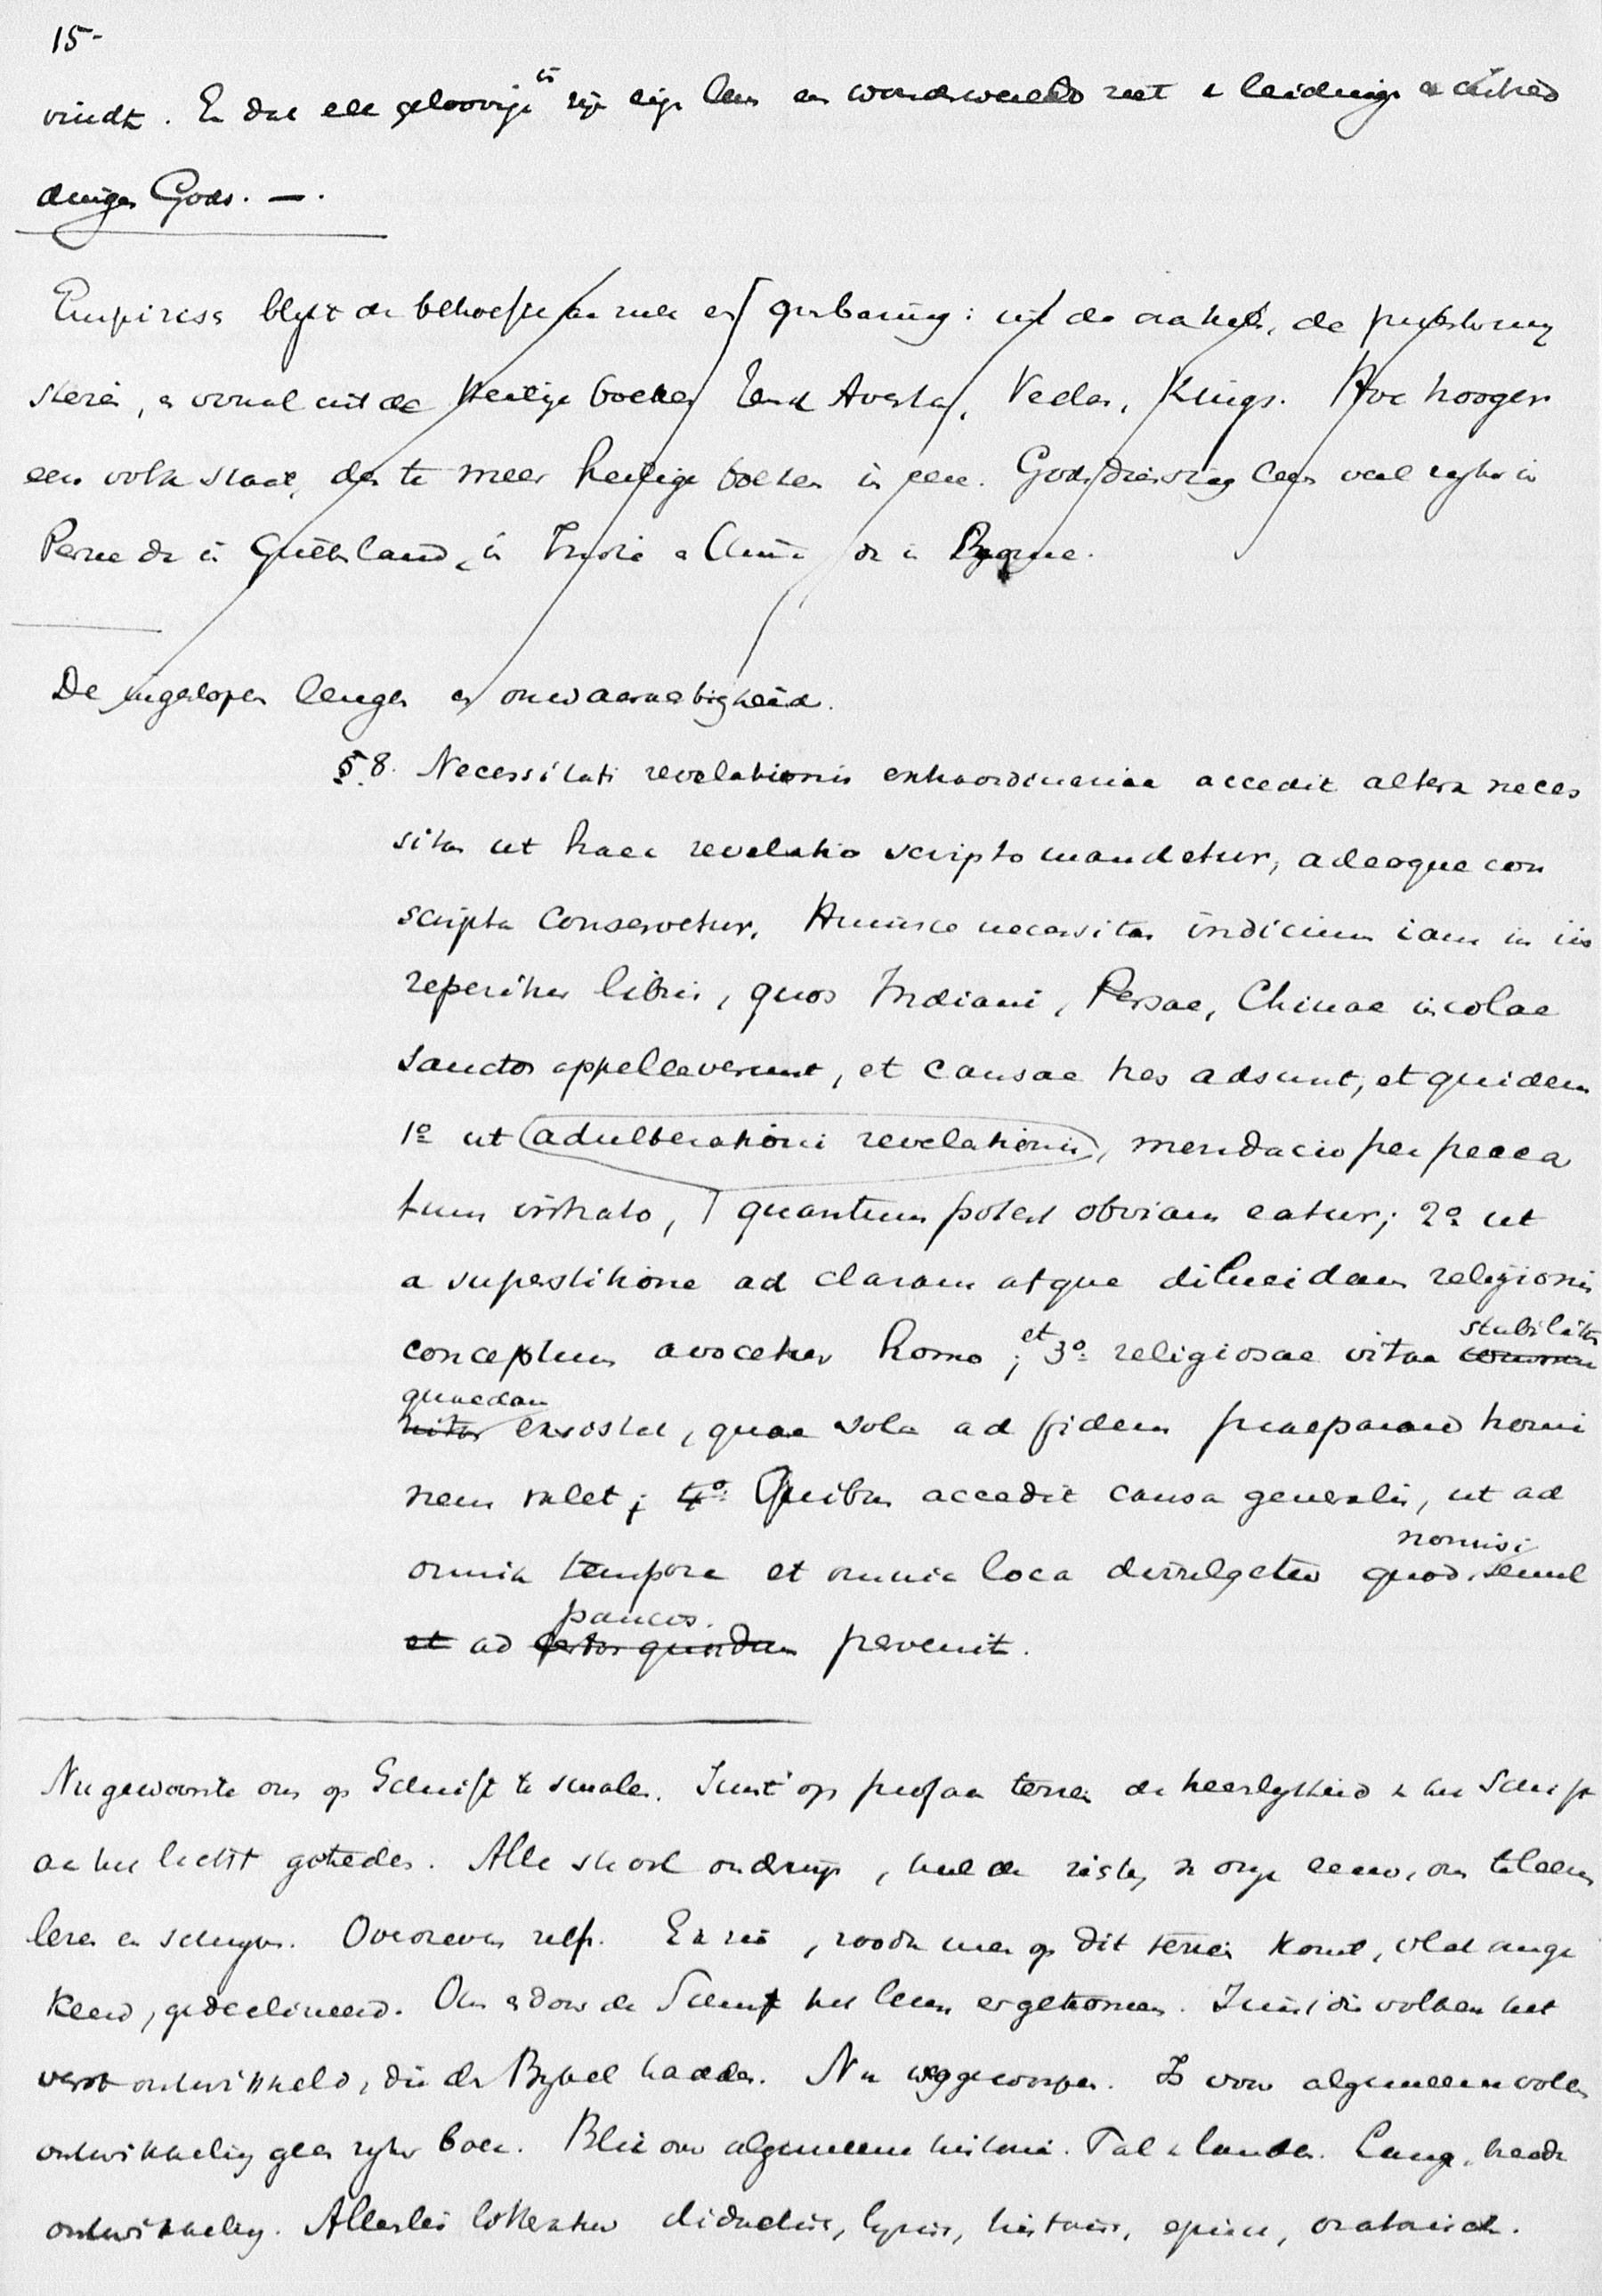 15-
vindt. En dat elk geloovige in zijn eige leven en
dingen Gods. —.
Empirisch blykt de behoefte aan openbaring: uit de orakels, de
, vooral uit de heilige boeken Zend Avesta, Vedas, Kings. Hoe hooger
een volk staat, des te meer heilige boeken in eere. Godsdienstig leven veel rijker in
Perzie dan in Griekenland, in Indie en China dan in
De ingeslopen leugen en onwaarachtigheid.
§ 8. Necessitati revelationis extraordinariae accedit altera neces
sitas ut haec revelatio scripto mandetur, adeoque con
scripta conservetur. Huiusce necessitas indicium iam in iis
reperitur libris, quos Indiani, Persae, Chinae incolae
sanctos appellaverunt, et causae tres adsunt, et quidem
1º ut adulterationi revelationis, mendacio per pecca
tum intrato, quantum potest obviam eatur; 2º ut
a superstitione ad claram atque dilucidam religionis
conceptum avocetur homo; et 3º religiosae vitae stabilitas
quaedam exsistat, quae sola ad fidem praeparare homi
nem valet; 4º Quibus accedit causa generalis, ut ad
omnia tempora et omnia loca divulgetur quod nonnisi semel
et ad paucos pervenit.
Nu gewoonte om op Schrift te smalen. Juist op profaan terrein de heerlykheid v. de Schrift
aan het licht getreden. Alle staat , om te leeren
lezen en schryven. Overdreven zelfs. En zie, zoodra men op dit terrein komt,
, gedeclineerd. Om en door de Schrift het lezen er gekomen. Juist die volken het
verst ontwikkeld, die de Bybel hadden. Nu weggeworpen. Is voor algemeene volks
ontwikkeling geen ryker boek. Blik over algemeene historie. Tal v. landen. Lang
ontwikkeling. Allerlei letterkunde didactisch, lyrisch, historisch, episch, oratorisch.